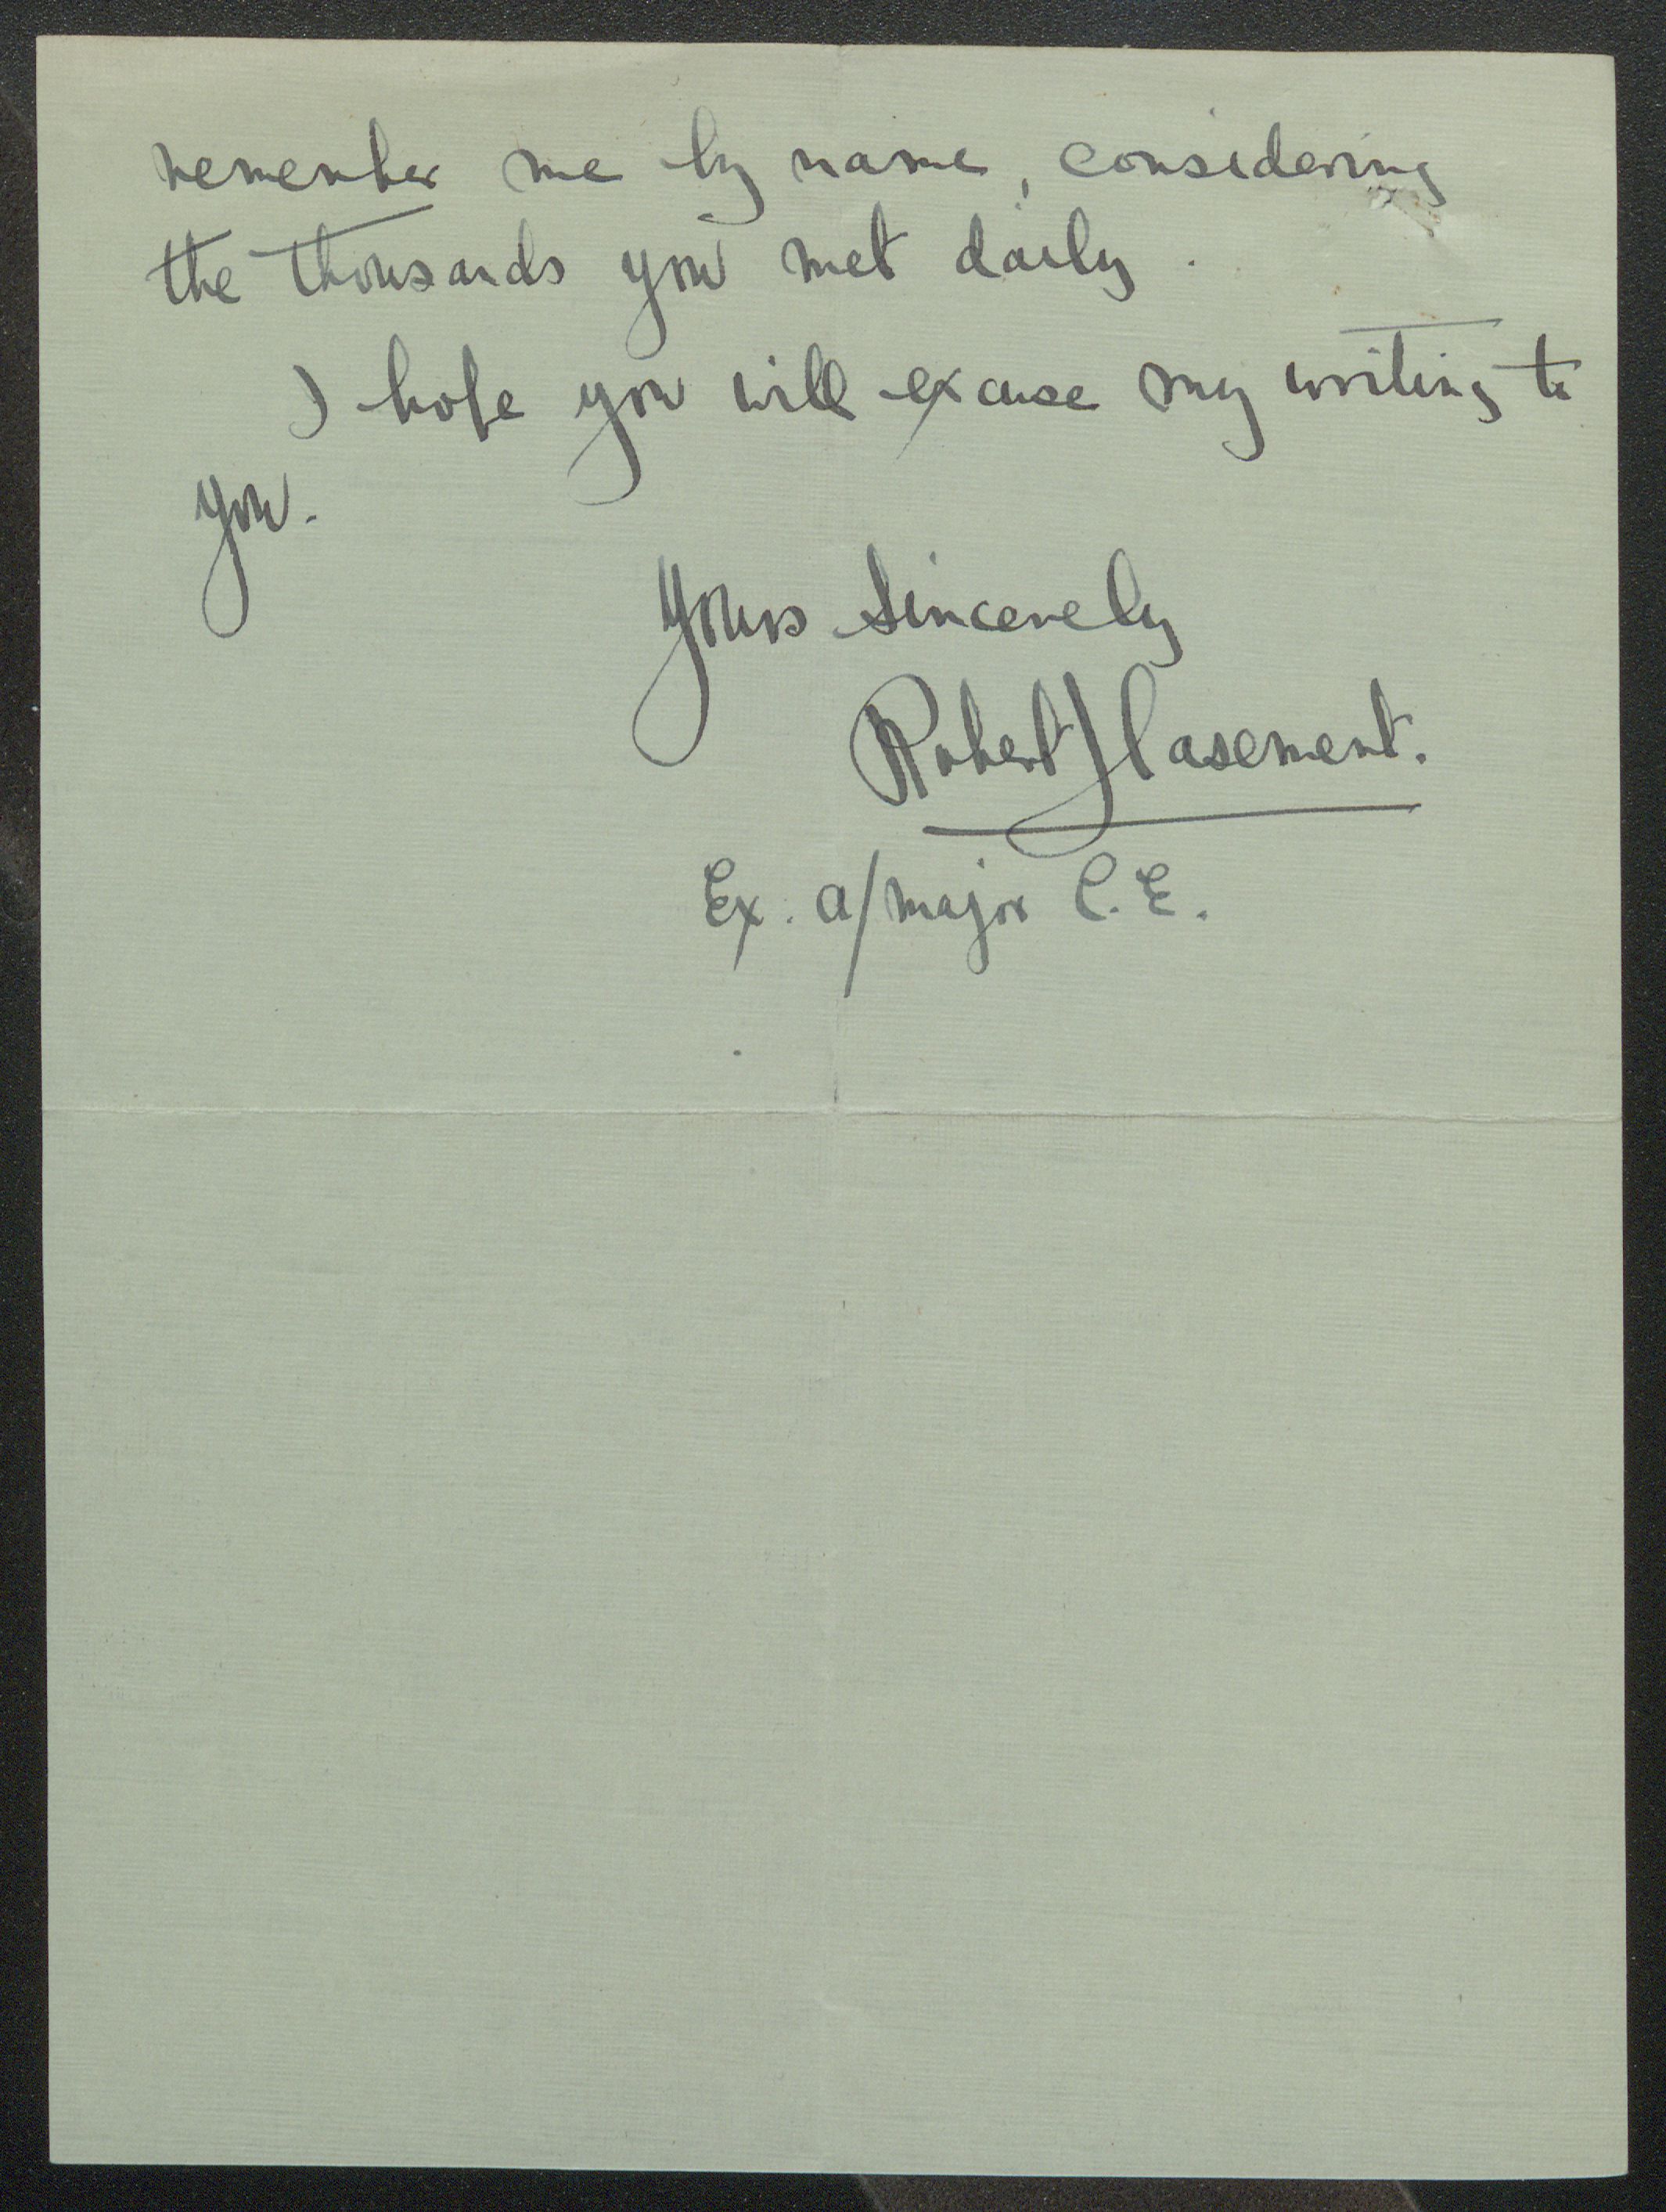 remember me by name, considering
the thousands you met daily.
I hope you will excuse my writing to
you.
Yours Sincerely
Robert J Casement.
Ex. a/major C.E.